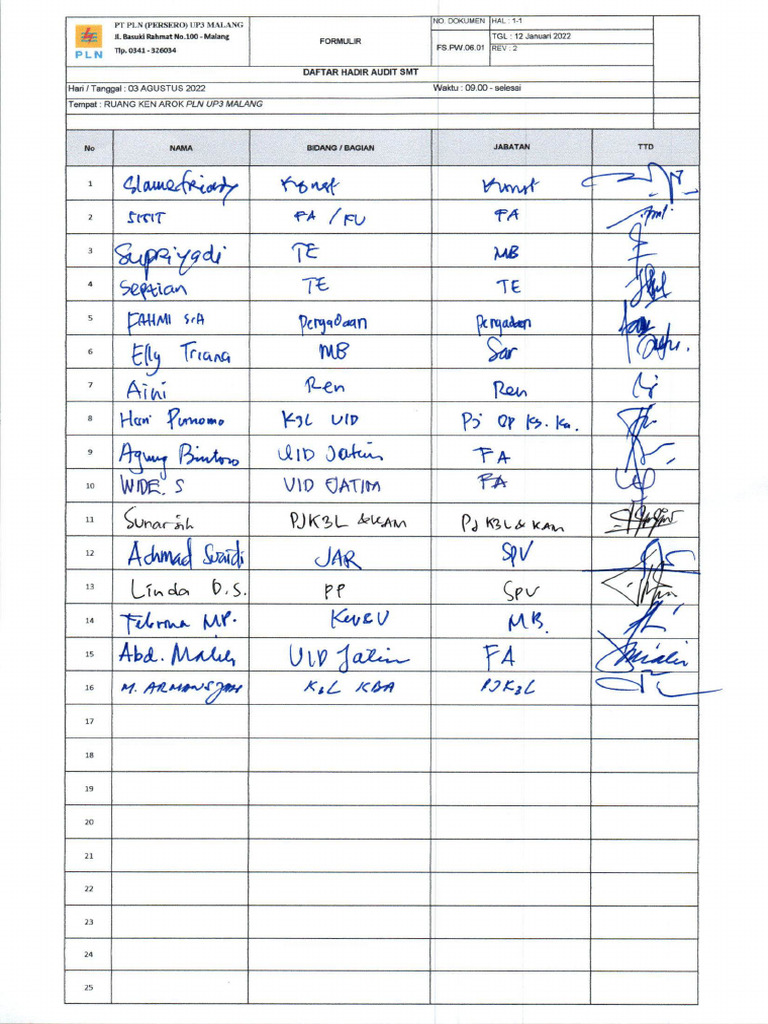 PLN
PT PLN (PERSERO) UP3 MALANG
Jl. Basuki Rahmat No.100 - Malang
Tlp. 0341 - 326034
FORMULIR
NO. DOKUMEN
FS.PW.06.01
HAL : 1-1
TGL : 12 Januari 2022
REV : 2
DAFTAR HADIR AUDIT SMT
Hari / Tanggal : 03 AGUSTUS 2022 Waktu : 09.00 - selesai
Tempat : RUANG KEN AROK PLN UP3 MALANG
No NAMA BIDANG / BAGIAN JABATAN TTD
1 Slametriady Konst Konst
2 SIGIT FA / FU FA
3 Supriyadi TE MB
4 Septian TE TE
5 FAHMI S.A Pengadaan Pengadaan
6 Elly Triana MB Sar
7 Aini Ren Ren
8 Hari Purnomo K3L UID Pj OP K3. Ka.
9 Agung Bintoro UID Jatim FA
10 WIDE. S UID JATIM FA
11 Sunarsih PJK3L & KAM PJ K3L & KAM
12 Achmad Suaidi JAR SPV
13 Linda D.S. PP SPV
14 Febrina MP. KEU & U MB.
15 Abd. Malik UID Jatim FA
16 M. ARMANSJAH K3L KBA PJK3L
17
18
19
20
21
22
23
24
25